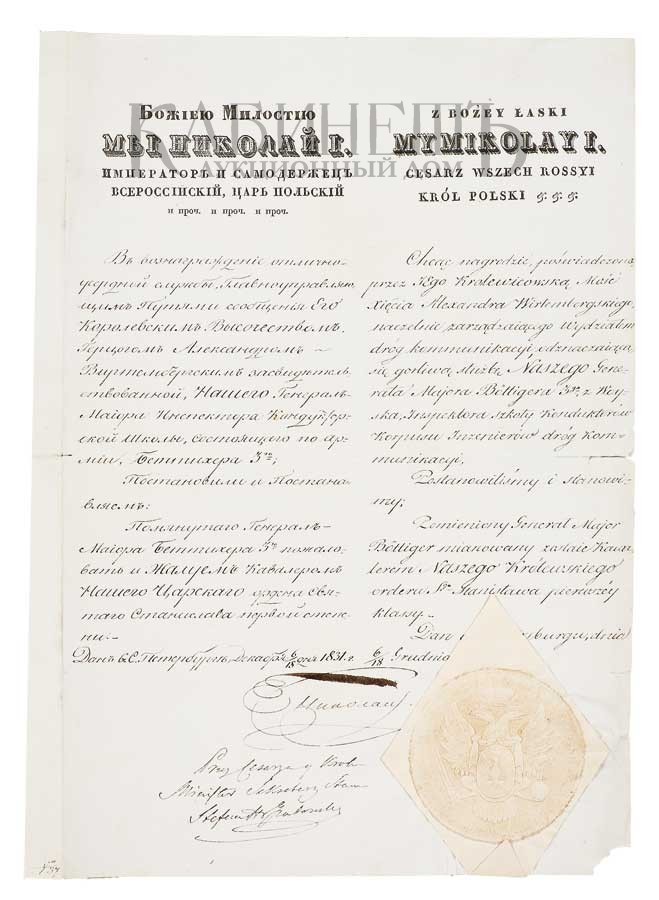 КАБИНЕТЪ
АУКЦИОННЫЙ ДОМ
Божіею Милостію
МЫ НИКОЛАЙ I.
ИМПЕРАТОРЪ И САМОДЕРЖЕЦЪ
ВСЕРОССІЙСКІЙ, ЦАРЬ ПОЛЬСКІЙ
и проч. и проч. и проч.
Въ вознагражденіе отлично-
усердной службы, Главноуправляю-
щимъ Путями сообщенія Его
Королевскимъ Высочествомъ,
Герцогомъ Александромъ
Виртембергскимъ засвидѣтель-
ствованной, Нашего Генералъ-
Маіора Инспектора Кондуктор-
ской Школы, состоящаго по ар-
міи, Беттихера 3го;
Постановили и Постана-
вляемъ:
Помянутаго Генералъ-
Маіора Беттихера 3го пожало-
вать и Жалуемъ Кавалеромъ
Нашего Царскаго ордена Свя-
таго Станислава первой степе-
ни.
Данъ въ С. Петербургѣ, Декабря 6/18 дня 1831. г.
Николай
Z BOŻEY ŁASKI
MY MIKOŁAY I.
CESARZ WSZECH ROSSYI
KRÓL POLSKI &. &. &.
Chcąc nagrodzić, poświadczoną
przez JEgo Królewicowską Mość
Xięcia Alexandra Wirtembergskiego,
naczelnie zarządzaiącego Wydziałem
dróg kommunikacyi, odznaczaiącą
się gorliwą służbę Naszego Gene-
rała Majora Böttigera 3go, z Woy-
ska, Inspektora Szkoły Konduktorów
Korpusu Inżenierów dróg kom-
munikacyi,
Postanowiliśmy i stanowi-
my:
Pomieniony General Major
Böttiger mianowany zostaie Kawa-
lerem Naszego Królewskiego
orderu Sgo Stanisława pierwszéy
klassy.
Dan burgu, dnia
6/18 Grudnia
Przez Cesarza y Króla
Minister Sekretarz Stanu
Stefan Hr Grabowski